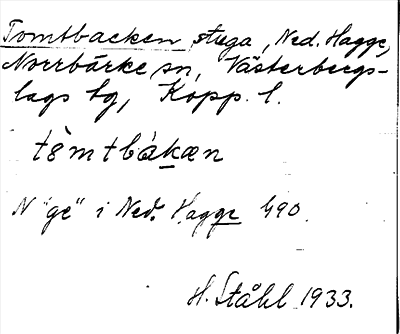 Tomtbacken, stuga, Ned. Hagge,
Norrbärke sn, Västerbergs-
lags tg, Kopp. l.
tòmtbákæn
N "ge" i Ned. Hagge 490.
H. Ståhl 1933.